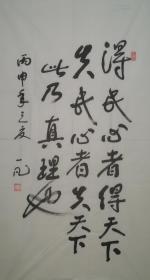 得民心者得天下
失民心者失天下
此乃真理也
丙申年之夏
一凡